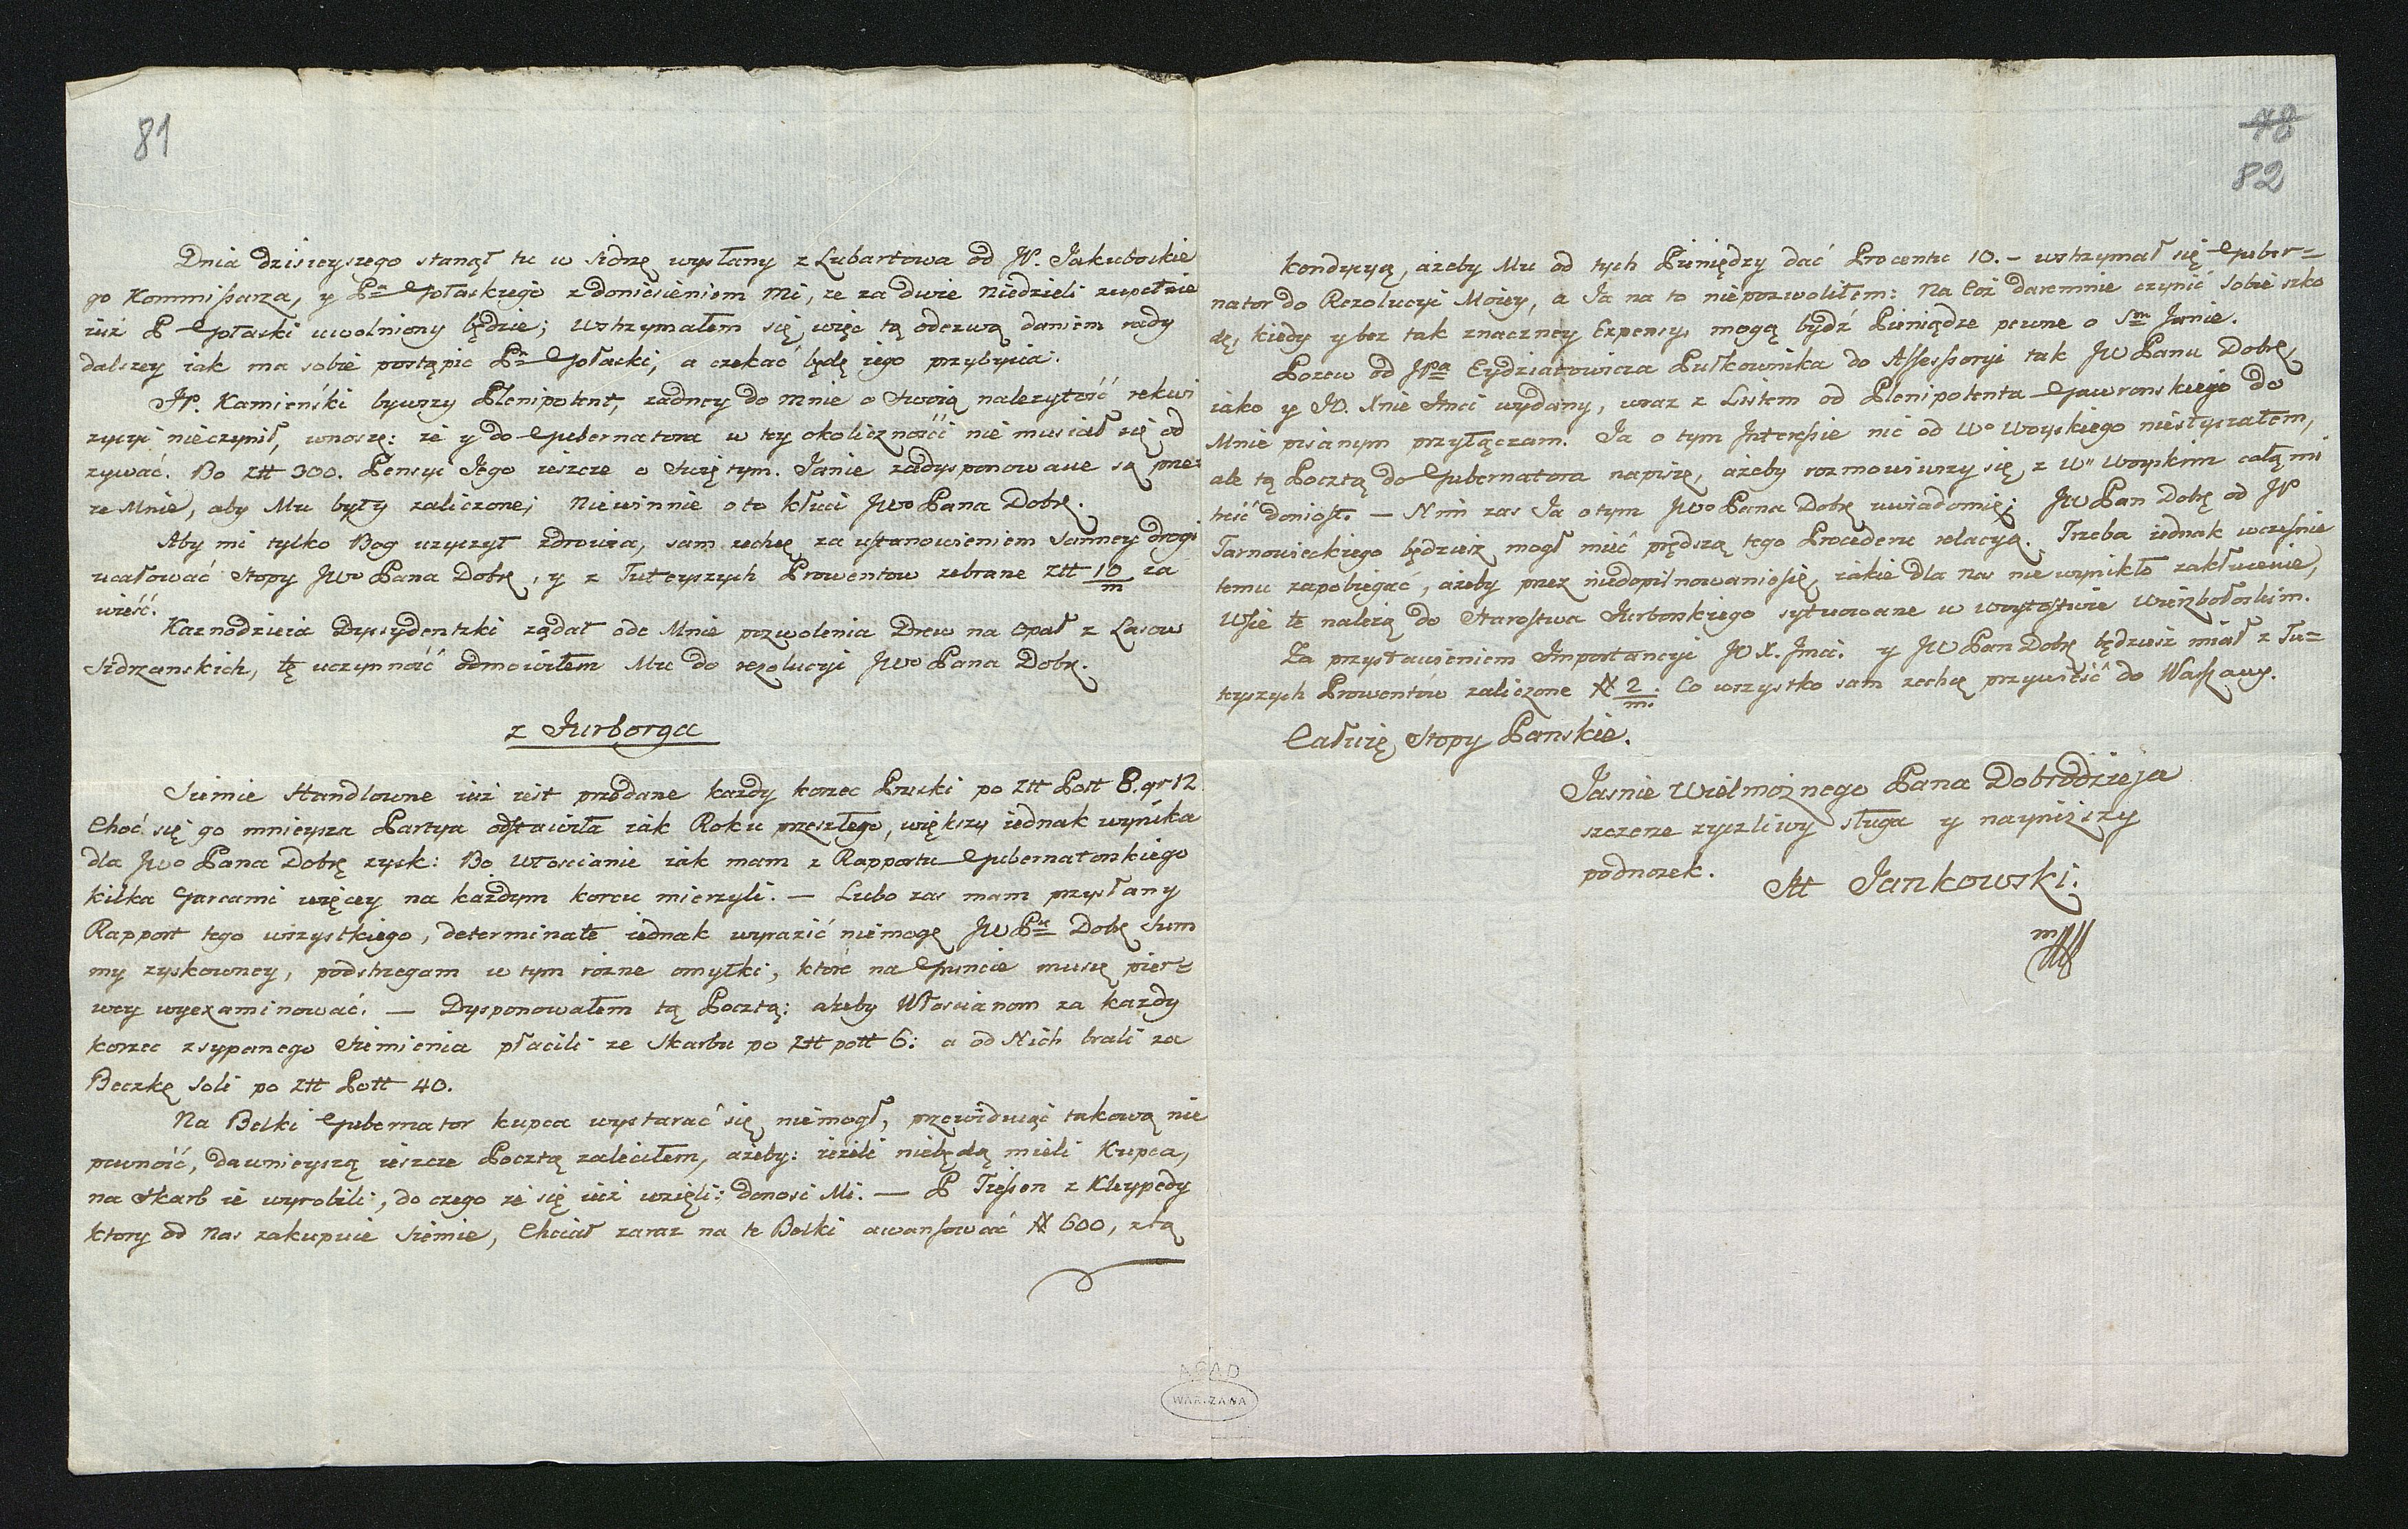 81
Dnia dzisieyszego stanął tu w Sidrze wysłany z Lubartowa od JP. Jakubowskie
go Kommissarza, y Pa Gołaskiego z doniesieniem Mi, ze za dwie Niedzieli zupełnie
iuż P Gołaski uwolniony będzie; wstrzymałem się więc tą odezwą daniem rady
dalszey iak ma sobie postąpic Pn Gołaski, a czekać będę iego przybycia.
JP. Kamieński bywszy Plenipotent, zadney do mnie o swoią należytość rekwi
zycyi nieczynił, wnoszę: że y do Gubernatora w tey okoliczności nie musiał się od
zywać. Bo Ztt 300. Pensyi Jego ieszcze o Swiętym. Janie zadysponowane są prze=
ze Mnie, aby Mu były zaliczone; Niewinnie o to kłuci JWo Pana Dobr.
Aby mi tylko Bog uzyczył zdrowia, sam zechcę za ustanowieniem sanney drogi
ucałować Stopy JWo Pana Dobr, y z Tuteyszych Prowentow zebrane Ztt 10/m za
wieść.
Kaznodzieia Dyssydentski ządał ode Mnie pozwolenia Drew na Opał z Lasow
Sidrzanskich, tę uczynność odmowiłem Mu do rezolucyi JWo Pana Dobr.
z Jurborga
Siemie Handlowne iuż iest przedane każdy korzec Pruski po Ztt Polt 8. gr 12
Choć się go mnieysza Partya odstawiła iak Roku przeszłego, większy iednak wynika
dla JWo Pana Dobr zysk: Bo Włoscianie iak mam z Rapportu Gubernatorskiego
kilka Garcami więcey na każdym korcu mierzyli. — Lubo zas mam przysłany
Rapport tego wszystkiego, determinate iednak wyrazić niemogę JWPu Dobr Sum
my zyskowney, podstrzegam w tym rózne omyłki, które na Gruncie muszę pier=
wey wyexaminować. — Dysponowałem tą Pocztą: ażeby Włoscianom za kazdy
korzec zsypanego Siemienia płacili ze Skarbu po Ztt polt 6: a od Nich brali za
Beczkę Soli po Ztt Polt 40.
Na Belki Gubernator kupca wystarać się niemogł, przewiduiąc takową nie
pewność, dawnieyszą ieszcze Pocztą zaleciłem, ażeby: ieżeli niebędą mieli Kupca,
na Skarb ie wyrobili, do czego że się iuż wzięli: donosi Mi. — P Tressen z Kleypedy
ktory od Nas zakupuie Siemie, Chciał zaraz na te Belki awansować # 600, z tą
48
82
kondycyą, ażeby Mu od tych Pieniędzy dać Procentu 10. - wstrzymał się Guber=
nator do Rezolucyi Moiey, a Ja na to niepozwoliłem: Na Coż daremnie czynić sobie szko
dę, kiedy y bez tak znaczney Expensy, mogą bydź Pieniądze pewne o Sm Janie.
Pozew od JPa Eydziatowicza Pułkownika do Assessoryi tak JW Panu Dobr,
iako y JO. Xnie Jmci wydany, wraz z Listem od Plenipotenta Gawronskiego do
Mnie pisanym przyłączam. Ja o tym Interessie nic od Wo Woyskiego niesłyszałem,
ale tą Pocztą do Gubernatora napiszę, ażeby rozmowiwszy się z Wm Woyskim całą mi
treść doniosł. — Nim zas Ja o tym JWo Pana Dobr uwiadomię; JW Pan Dobr od JP
Tarnowieckiego będziesz mogł mieć prędszą tego Procederu relacyą. Trzeba iednak wcześnie
temu zapobiegać, ażeby przez niedopilnowaniesię, iakie dla Nas nie wynikło zakłucenie,
Wsie te należą do Starostwa Jurborskiego sytuowane w woytostwie Wierzbołoskim.
Za przystawieniem Importancyi JO X. Jmci. y JW Pan Dobr będziesz miał z Tu=
teyszych Prowentów zaliczone # 2/m. Co wszystko sam zechcę przywieść do Warszawy.
Całuię Stopy Panskie.
Jasnie Wielmożnego Pana Dobrodzieja
szczerze zyczliwy sługa y nayniższy
podnozek.
At Jankowski.
mp
AGAD
WARSZAWA